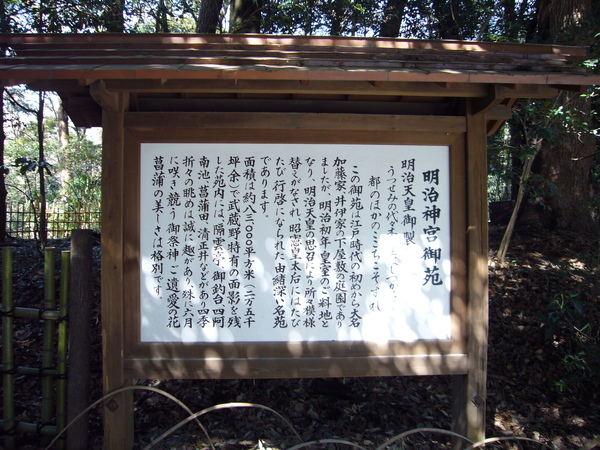 明治神宮御苑
明治天皇御製
うつせみの代々木の里はしづかにて
都のほかのここちこそすれ
この御苑は江戸時代の初めから大名
加藤家、井伊家の下屋敷の庭園であり
ましたが、明治初年皇室のご料地と
なり、明治天皇の思召により所々模様
替えがなされ、昭憲皇太后にはたび
たび行啓になられた由緒深い名苑
であります。
面積は約八三、〇〇〇平方米（二万五千
坪余）で武蔵野特有の面影を残
した苑内には、隔雲亭、御釣台、四阿、
南池、菖蒲田、清正井などがあり四季
折々の眺めは誠に趣があり、殊に六月
に咲き競う御祭神ご遺愛の花
菖蒲の美しさは格別です。